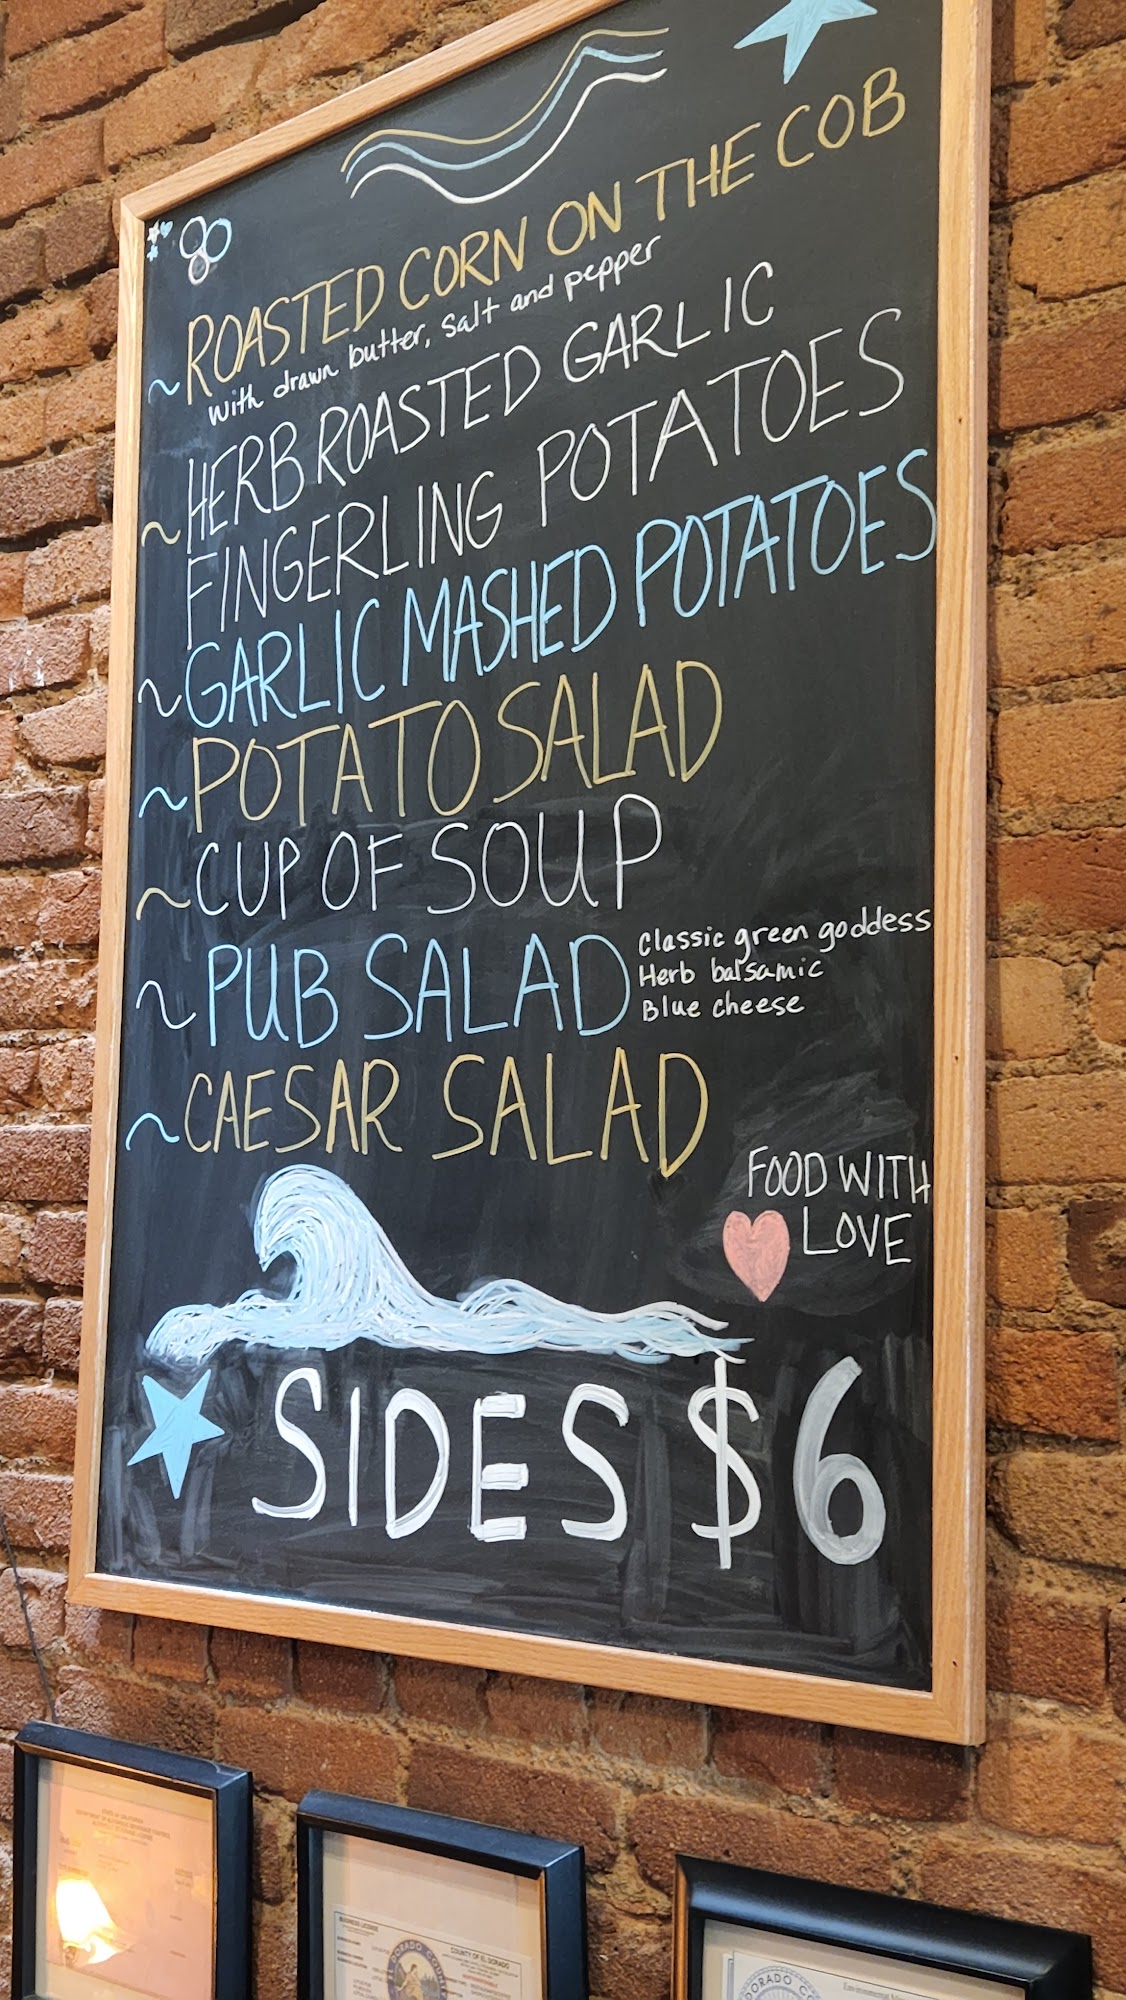 ~ROASTED CORN ON THE COB
with drawn butter, salt and pepper
~HERB ROASTED GARLIC
FINGERLING POTATOES
~GARLIC MASHED POTATOES
~POTATO SALAD
~CUP OF SOUP
~PUB SALAD
Classic green goddess
Herb balsamic
Blue cheese
~CAESAR SALAD
FOOD WITH
LOVE
SIDES $6
STATE OF CALIFORNIA
BUSINESS LICENSE
COUNTY OF EL DORADO